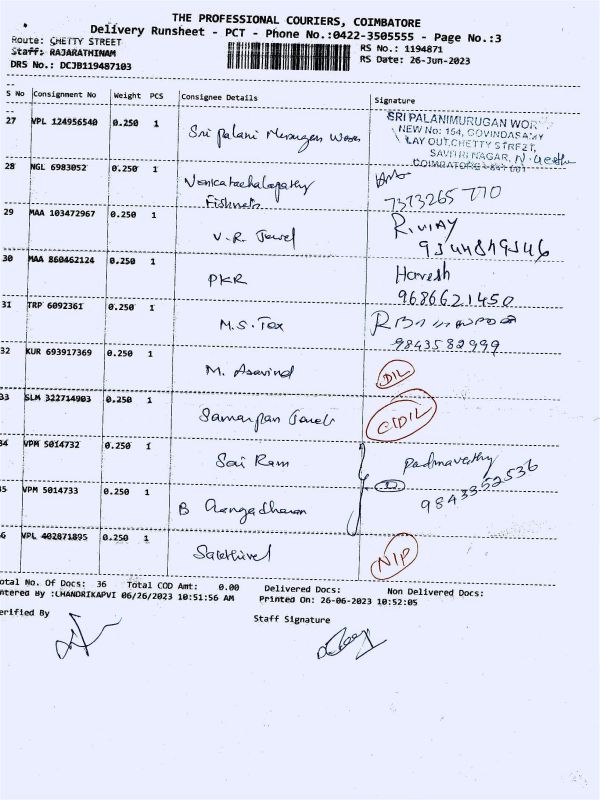 THE PROFESSIONAL COURIERS, COIMBATORE
Delivery Runsheet - PCT - Phone No.:0422-3505555 - Page No.:3
Route: CHETTY STREET
RS No.: 1194871
Staff: RAJARATHINAM
RS Date: 26-Jun-2023
DRS No.: DCJB119487103
S No Consignment No Weight PCS Consignee Details Signature
27 VPL 124956540 0.250 1 Sri palani Murugan Works
SRI PALANIMURUGAN WOR
NEW No: 164, GOVINDASAMY
LAY OUT, CHETTY STREET,
SAVITRI NAGAR,
COIMBATORE
28 NGL 6983052 0.250 1 Venkatachalapathy
Fishnets
7373265770
29 MAA 103472967 0.250 1 V.R. Jewel R.VIJAY
9344849346
30 MAA 860462124 0.250 1 PKR Haresh
9686621450
31 TRP 6092361 0.250 1 M.S. Tex
9843582999
32 KUR 693917369 0.250 1 M. Aravind D/L
33 SLM 322714903 0.250 1 Samarpan Jewels
34 VPM 5014732 0.250 1 Sai Ram Padmavathy
9843352536
35 VPM 5014733 0.250 1 B Rangadharan
36 VPL 402871895 0.250 1 Sakthivel N/P
Total No. Of Docs: 36 Total COD Amt: 0.00 Delivered Docs: Non Delivered Docs:
Entered By :CHANDRIKAPVI 06/26/2023 10:51:56 AM Printed On: 26-06-2023 10:52:05
Verified By Staff Signature